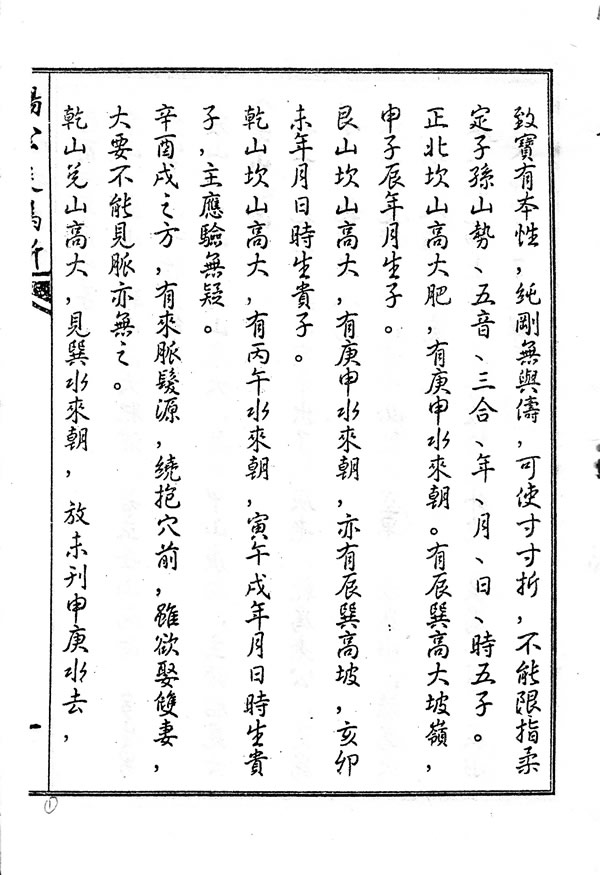 致寶有本性，純剛無與儔，可使寸寸折，不能限指柔
定子孫山勢、五音、三合、年、月、日、時五子。
正北坎山高大肥，有庚申水來朝。有辰巽高大坡嶺，
申子辰年月生子。
艮山坎山高大，有庚申水來朝，亦有辰巽高坡，亥卯
未年月日時生貴子。
乾山坎山高大，有丙午水來朝，寅午戌年月日時生貴
子，主應驗無疑。
辛酉戌之方，有來脈髮源，繞抱穴前，雖欲娶雙妻，
大要不能見脈亦無之。
乾山兌山高大，見巽水來朝，放未刊申庚水去，
一
1